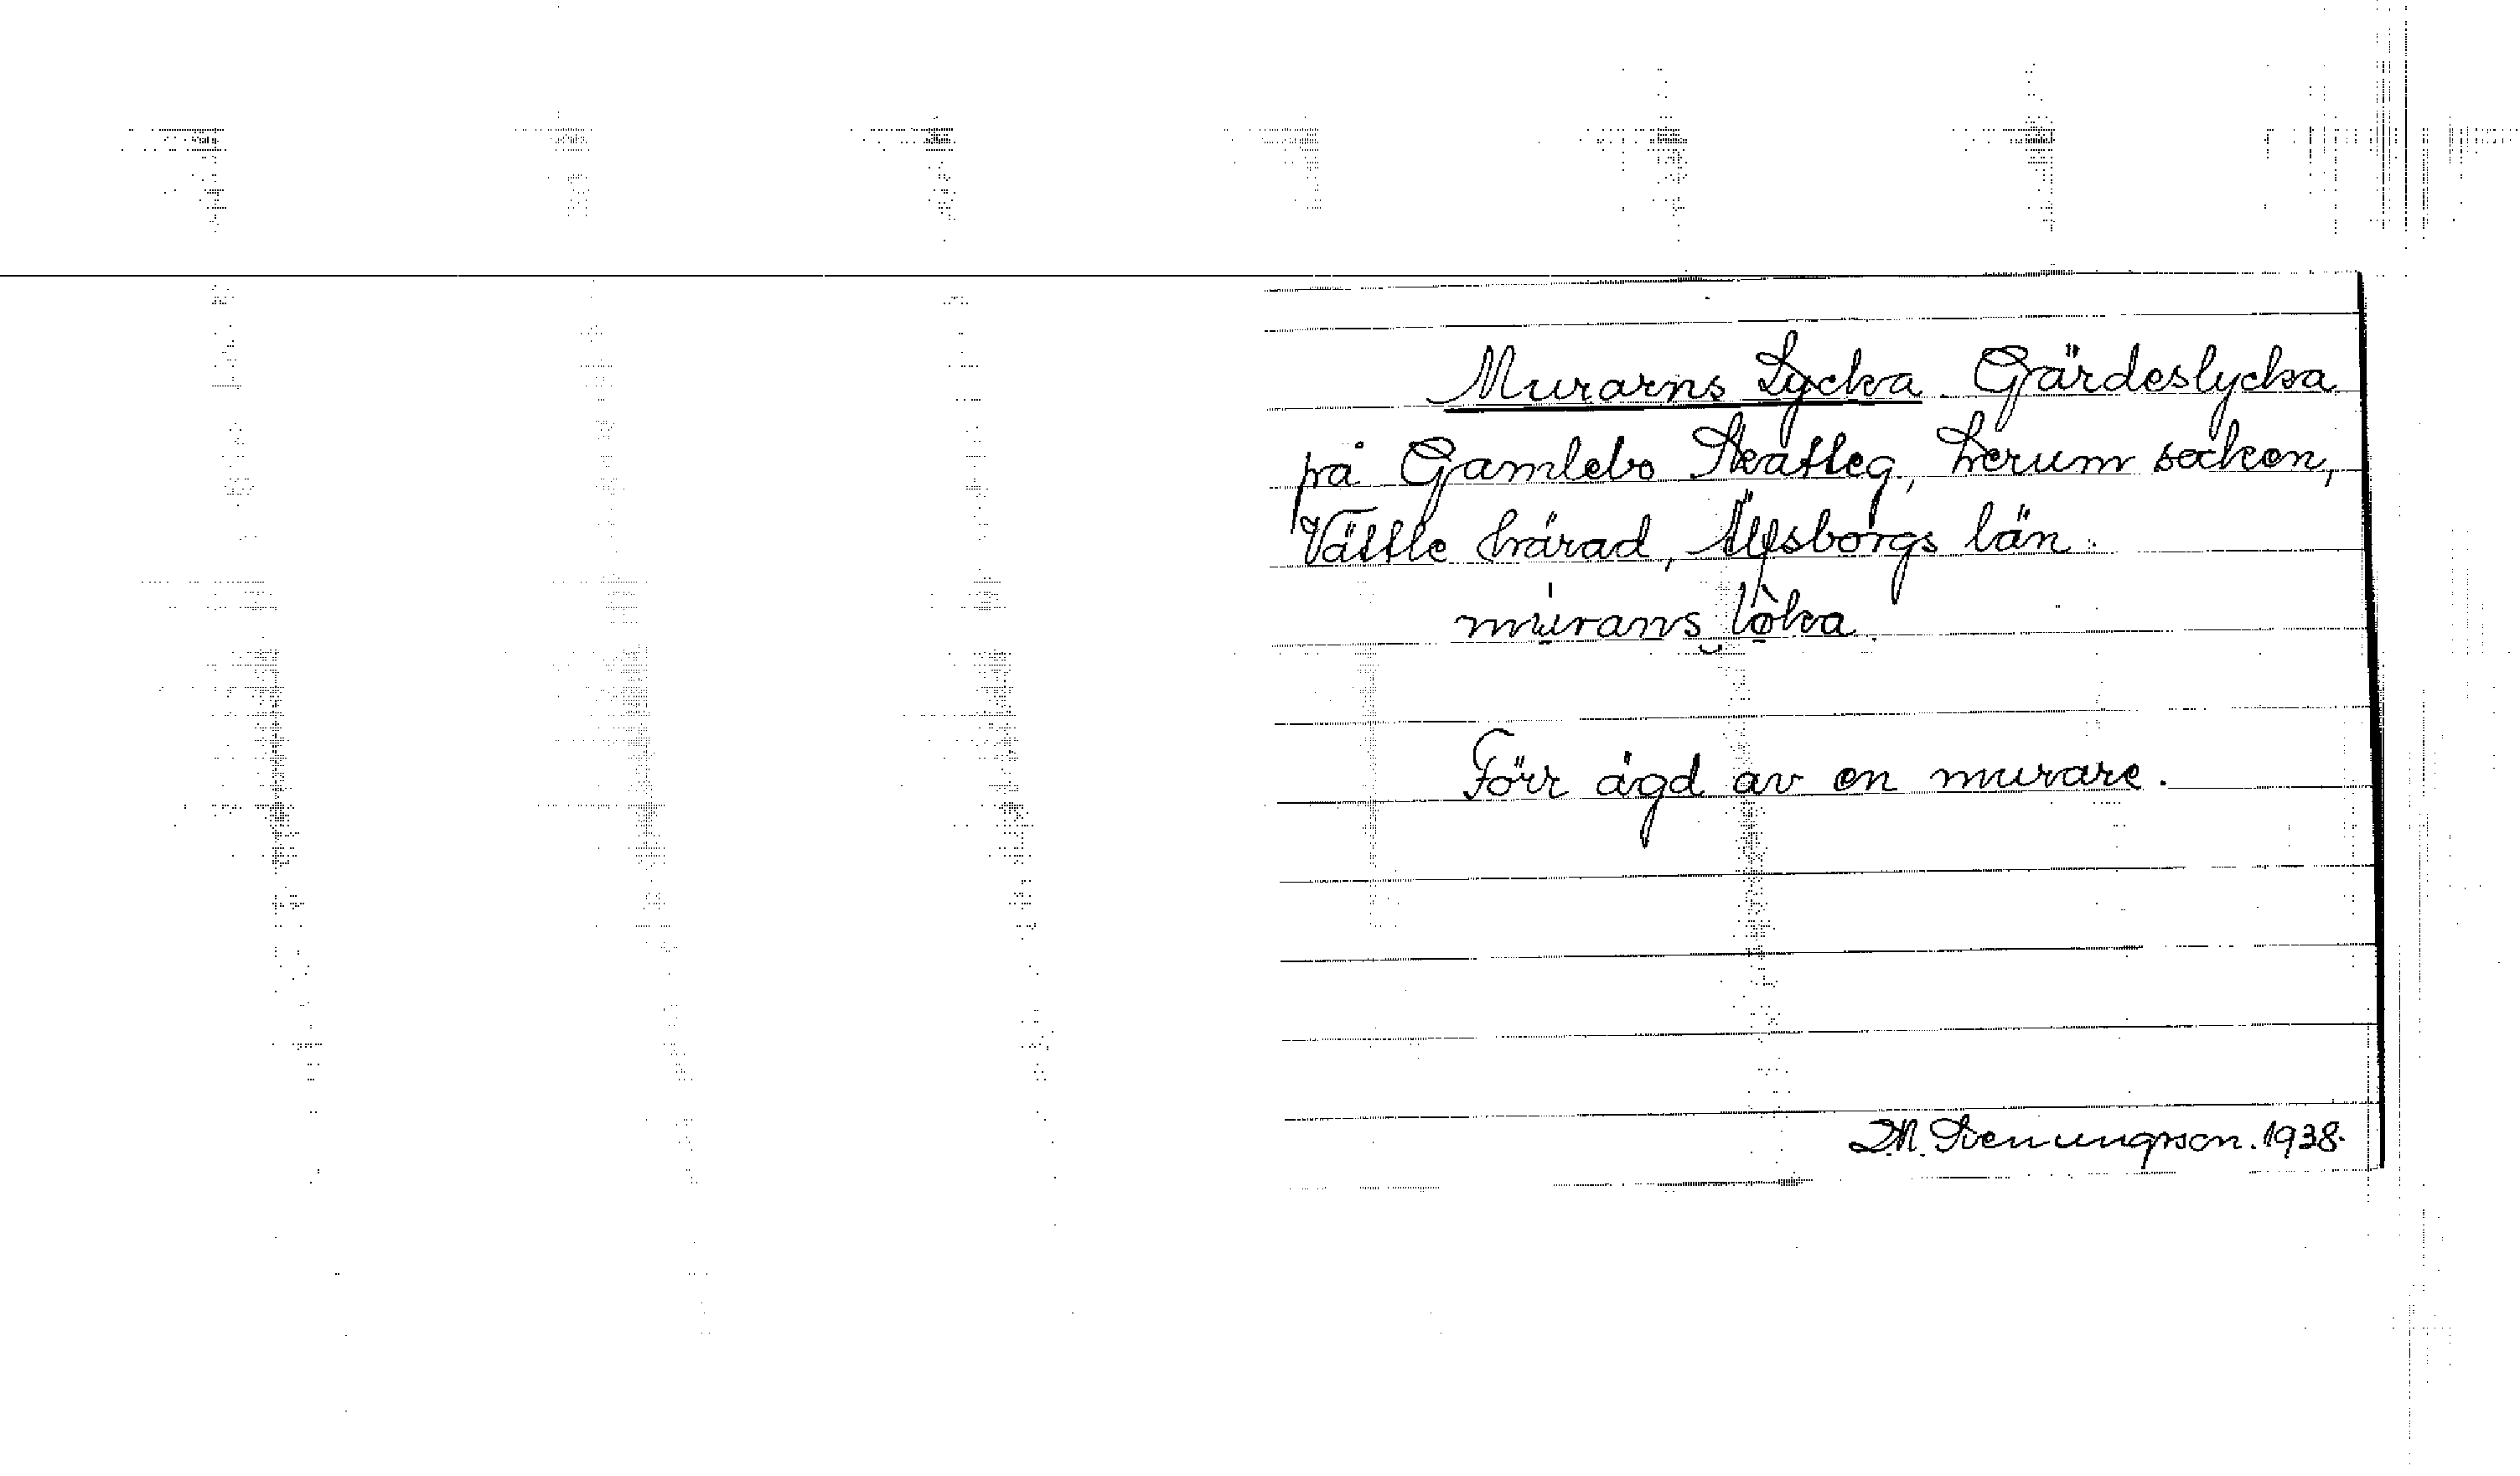 Murarns Lycka. Gärdeslycka
på Gamlebo Skatteg, Lerum socken,
Vättle härad, Älfsborgs län.
mu̇rans lȯ̩ka.
Förr ägd av en murare.
D.M. Svenungsson. 1938.